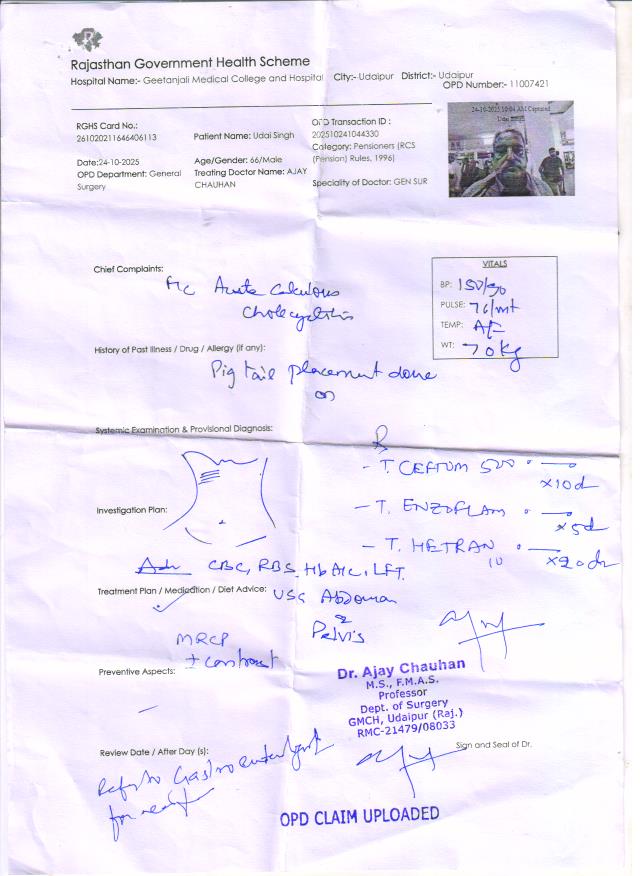 Rajasthan Government Health Scheme
Hospital Name:- Geetanjali Medical College and Hospital City:- Udaipur District:- Udaipur
OPD Number:- 11007421
RGHS Card No.:
261020211646406113
Patient Name: Udai Singh
OPD Transaction ID :
202510241044330
Category: Pensioners (RCS
(Pension) Rules, 1996)
Date:24-10-2025
OPD Department: General
Surgery
Age/Gender: 66/Male
Treating Doctor Name: AJAY
CHAUHAN
Speciality of Doctor: GEN SUR
24-10-2025 10:04 AM Captured
Udai
Chief Complaints:
Acute Calculous
Cholecystitis
VITALS
BP: 150/90
PULSE: 76/mt
TEMP:
WT: 70 kg
History of Past Illness / Drug / Allergy (if any):
Pig tail placement done
on
Systemic Examination & Provisional Diagnosis:
Rx
- T. CEFTUM 500
x10d
- T. ENZOFLAM
x5d
- T. HETRAN
10
Investigation Plan:
Adv CBC, RBS, HbA1c, LFT.
Treatment Plan / Medication / Diet Advice:
USG Abdomen
&
Pelvis
MRCP
± contrast
Preventive Aspects:
Dr. Ajay Chauhan
M.S., F.M.A.S.
Professor
Dept. of Surgery
GMCH, Udaipur (Raj.)
RMC-21479/08033
Sign and Seal of Dr.
Review Date / After Day (s):
Refer to Gastroenterologist
for
OPD CLAIM UPLOADED